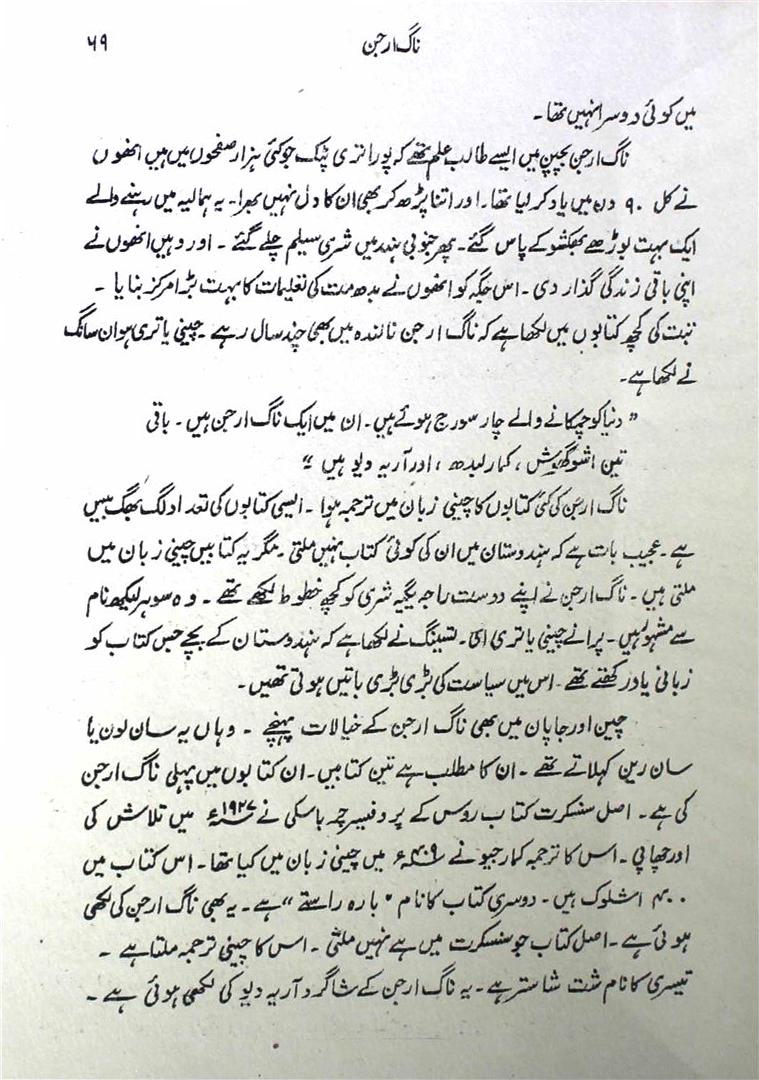 ناگ ارجن ۶۹
میں کوئی دوسرا نہیں تھا۔
ناگ ارجن بچپن میں ایسے طالب علم تھے کہ پورا تری پٹک جو کئی ہزار صفحوں میں ہیں انھوں
نے کل ۹۰ دن میں یاد کر لیا تھا۔ اور اتنا پڑھ کر بھی ان کا دل نہیں بھرا۔ یہ ہمالیہ میں رہنے والے
ایک بہت بوڑھے بھکشو کے پاس گئے۔ پھر جنوبی ہند میں شری سیلم چلے گئے۔ اور وہیں انھوں نے
اپنی باقی زندگی گذار دی۔ اس جگہ کو انھوں نے بدھ مت کی تعلیمات کا بہت بڑا مرکز بنا یا۔
تبت کی کچھ کتابوں میں لکھا ہے کہ ناگ ارجن نالندہ میں بھی چند سال رہے۔ چینی یاتری ہوان سانگ
نے لکھا ہے۔
" دنیا کو چمکانے والے چار سورج ہوئے ہیں۔ ان میں ایک ناگ ارجن ہیں۔ باقی
تین اشو گھوش، کمار لبدھ، اور آریہ دیو ہیں "
ناگ ارجن کی کئی کتابوں کا چینی زبان میں ترجمہ ہوا۔ ایسی کتابوں کی تعداد لگ بھگ بیس
ہے۔ عجیب بات ہے کہ ہندوستان میں ان کی کوئی کتاب نہیں ملتی۔ مگر یہ کتابیں چینی زبان میں
ملتی ہیں۔ ناگ ارجن نے اپنے دوست راجہ یگیہ شری کو کچھ خطوط لکھے تھے۔ وہ سوہر لیکھ نام
سے مشہور ہیں۔ پرانے چینی یاتری ای۔ تسینگ نے لکھا ہے کہ ہندوستان کے بچے جس کتاب کو
زبانی یاد رکھتے تھے۔ اس میں سیاست کی بڑی بڑی باتیں ہوتی تھیں۔
چین اور جاپان میں بھی ناگ ارجن کے خیالات پہنچے۔ وہاں یہ سان لون یا
سان رین کہلاتے تھے۔ ان کا مطلب ہے تین کتابیں۔ ان کتابوں میں پہلی ناگ ارجن
کی ہے۔ اصل سنسکرت کتاب روس کے پروفیسر چرباسکی نے ۱۹۲۷ء میں تلاش کی
اور چھاپی۔ اس کا ترجمہ کمار جیو نے ۴۰۹ء میں چینی زبان میں کیا تھا۔ اس کتاب میں
۴۰۰ اشلوک ہیں۔ دوسری کتاب کا نام "بارہ راستے" ہے۔ یہ بھی ناگ ارجن کی لکھی
ہوئی ہے۔ اصل کتاب جو سنسکرت میں ہے نہیں ملتی۔ اس کا چینی ترجمہ ملتا ہے۔
تیسری کا نام شت شاستر ہے۔ یہ ناگ ارجن کے شاگرد آریہ دیو کی لکھی ہوئی ہے۔